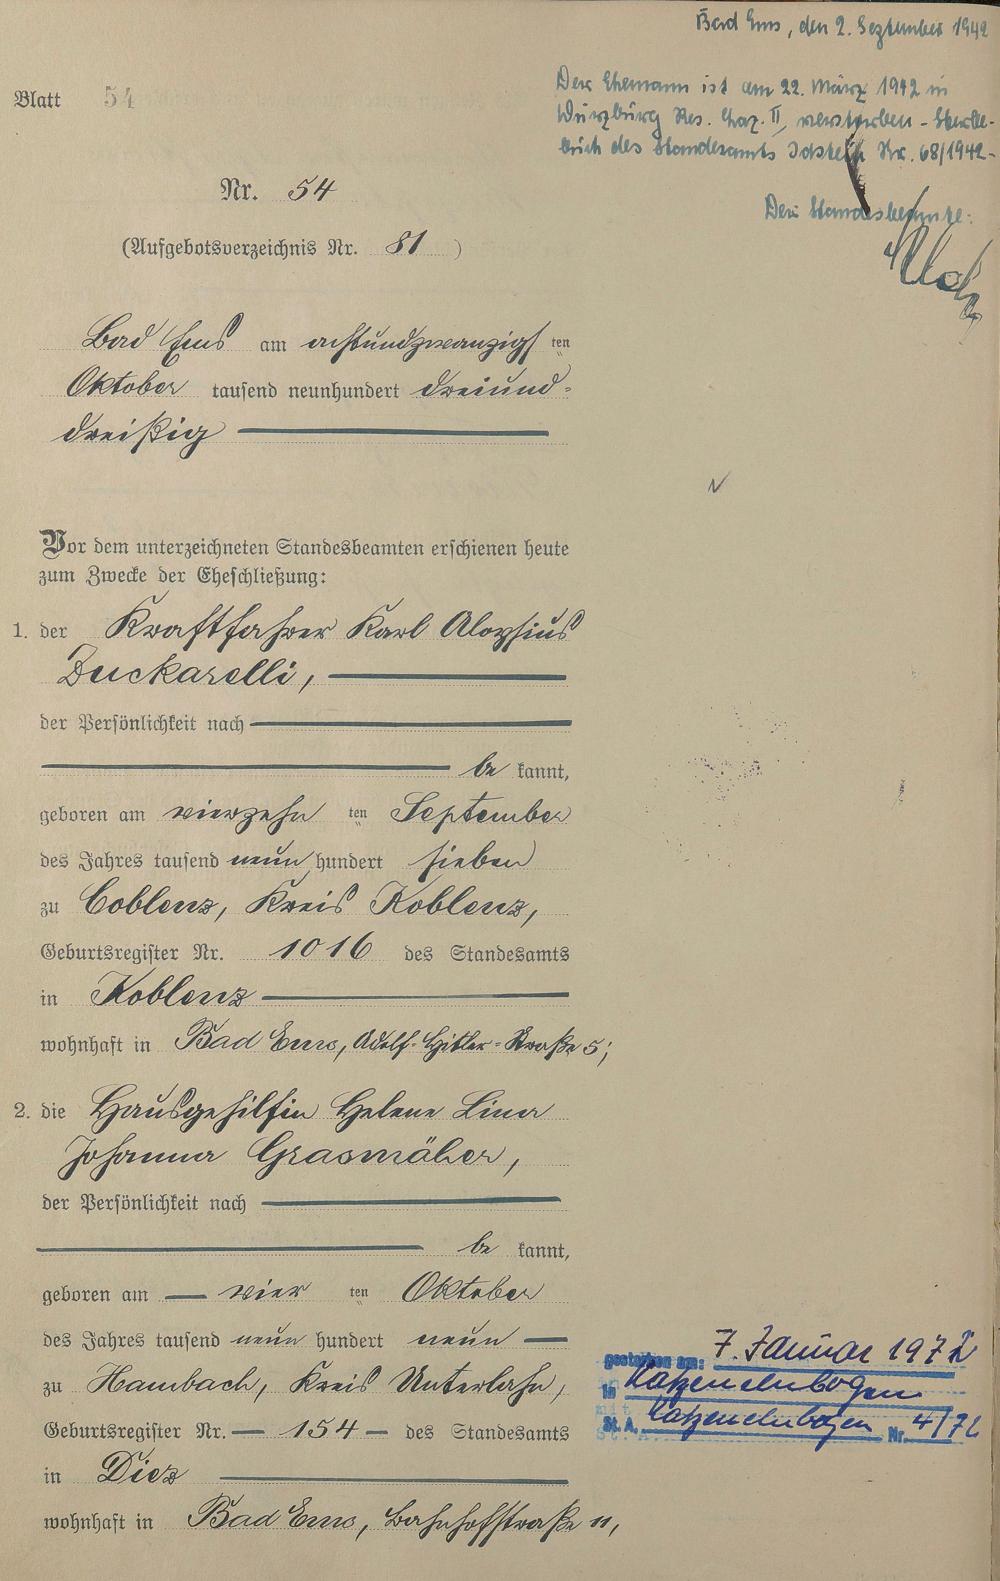 Bad Ems, den 2. September 1942
Der Ehemann ist am 22. März 1942 in
Würzburg Res. Laz. II, verstorben - Sterbe-
buch des Standesamts Idstein Nr. 68/1942 -
Der Standesbeamte:
Blatt 54
Nr. 54
(Aufgebotsverzeichnis Nr. 81)
Bad Ems am achtundzwanzigsten
Oktober tausend neunhundert dreiund-
dreißig
Vor dem unterzeichneten Standesbeamten erschienen heute
zum Zwecke der Eheschließung:
1. der Kraftfahrer Karl Aloysius
Zuckarelli,
der Persönlichkeit nach
be kannt,
geboren am vierzehn ten September
des Jahres tausend neun hundert sieben
zu Coblenz, Kreis Koblenz,
Geburtsregister Nr. 1016 des Standesamts
in Koblenz
wohnhaft in Bad Ems, Adolf-Hitler-Straße 5;
2. die Hausgehilfin Helene Lina
Johanna Grasmäher,
der Persönlichkeit nach
be kannt,
geboren am vier ten Oktober
des Jahres tausend neun hundert neun
zu Hambach, Kreis Unterlahn,
Geburtsregister Nr. 154 des Standesamts
in Diez
wohnhaft in Bad Ems, Bahnhofstraße 11,
gestorben am: 7. Januar 1972
in Katzenelnbogen
St. A. Katzenelnbogen Nr. 4/72